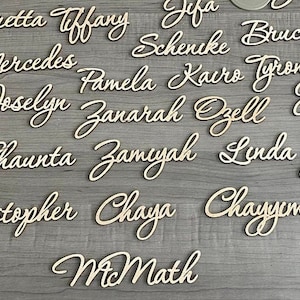 etta Tiffany Jifa
Schenike Bruc
ercedes
Pamela Kairo Tyron
oselyn
Zanarah Ozell
haunta Zamiyah Linda
topher Chaya Chayym
McMath